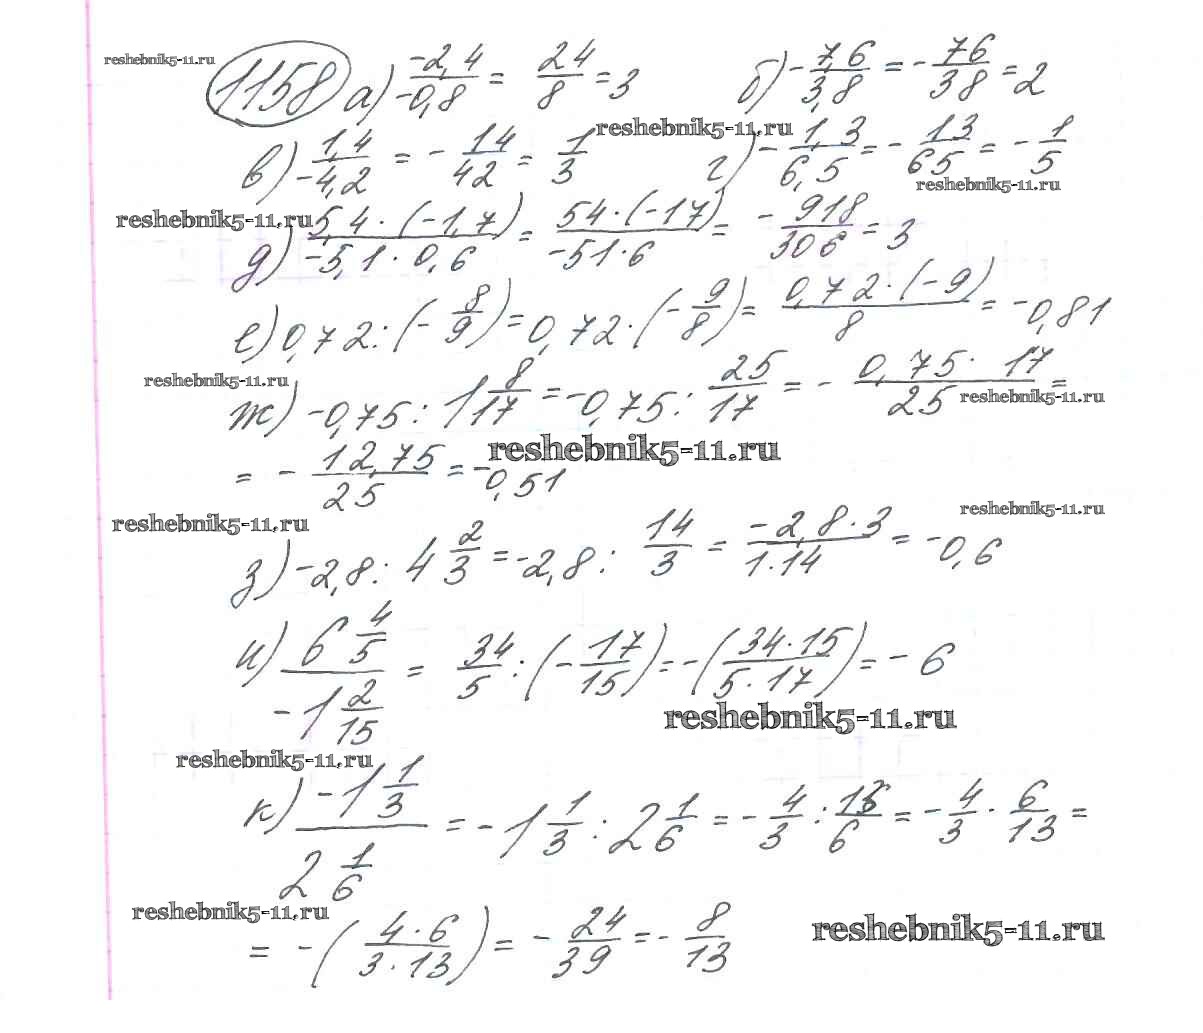 reshebnik5-11.ru
1158 а) -2,4/-0,8 = 24/8 = 3 б) -7,6/3,8 = -76/38 = 2
reshebnik5-11.ru
в) 1,4/-4,2 = -14/42 = 1/3 г) -1,3/6,5 = -13/65 = -1/5
reshebnik5-11.ru
reshebnik5-11.ru
д) 5,4·(-1,7)/-5,1·0,6 = 54·(-17)/-51·6 = -918/306 = 3
е) 0,72:(-8/9) = 0,72·(-9/8) = 0,72·(-9)/8 = -0,81
reshebnik5-11.ru
ж) -0,75:1 8/17 = -0,75:25/17 = -0,75·17/25 =
reshebnik5-11.ru
= -12,75/25 = -0,51
reshebnik5-11.ru
reshebnik5-11.ru
reshebnik5-11.ru
з) -2,8:4 2/3 = -2,8:14/3 = -2,8·3/1·14 = -0,6
и) 6 4/5/-1 2/15 = 34/5:(-17/15) = -(34·15/5·17) = -6
reshebnik5-11.ru
reshebnik5-11.ru
к) -1 1/3/2 1/6 = -1 1/3:2 1/6 = -4/3:13/6 = -4/3·6/13 =
reshebnik5-11.ru
= -(4·6/3·13) = -24/39 = -8/13
reshebnik5-11.ru